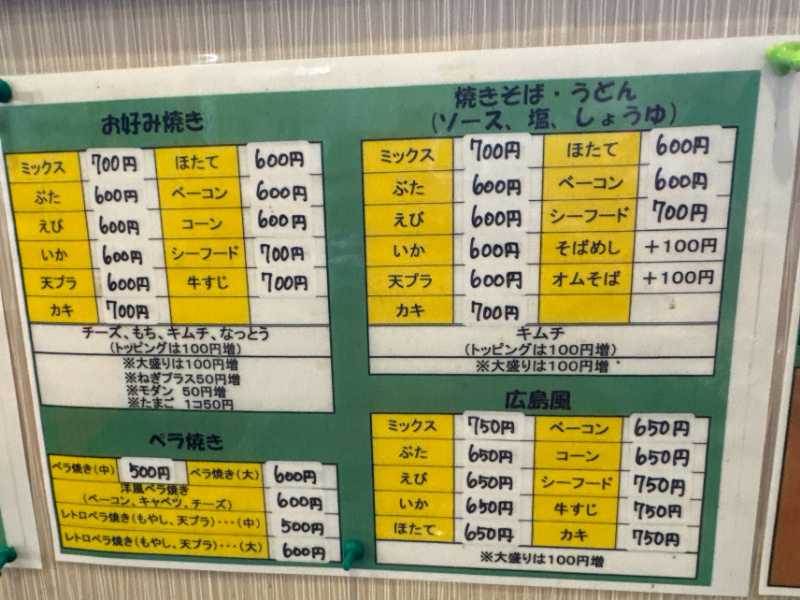 お好み焼き
ミックス 700円 ほたて 600円
ぶた 600円 ベーコン 600円
えび 600円 コーン 600円
いか 600円 シーフード 700円
天プラ 600円 牛すじ 700円
カキ 700円
チーズ、もち、キムチ、なっとう
(トッピングは100円増)
※大盛りは100円増
※ねぎプラス50円増
※モダン 50円増
※たまご 1コ50円
ペラ焼き
ペラ焼き(中) 500円 ペラ焼き(大) 600円
洋風ペラ焼き
(ベーコン、キャベツ、チーズ) 600円
レトロペラ焼き(もやし、天プラ)･･･(中) 500円
レトロペラ焼き(もやし、天プラ)･･･(大) 600円
焼きそば・うどん
(ソース、塩、しょうゆ)
ミックス 700円 ほたて 600円
ぶた 600円 ベーコン 600円
えび 600円 シーフード 700円
いか 600円 そばめし +100円
天プラ 600円 オムそば +100円
カキ 700円
キムチ
(トッピングは100円増)
※大盛りは100円増
広島風
ミックス 750円 ベーコン 650円
ぶた 650円 コーン 650円
えび 650円 シーフード 750円
いか 650円 牛すじ 750円
ほたて 650円 カキ 750円
※大盛りは100円増